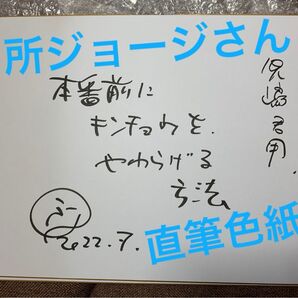 所ジョージさん
児嶋君用
本番前に
キンチョウを
やわらげる
方法
2022.7.
直筆色紙